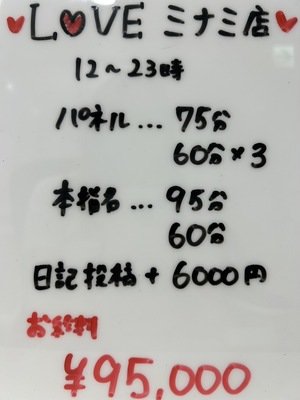 ♥LOVE ミナミ店♥
12〜23時
パネル... 75分
60分×3
本指名... 95分
60分
日記投稿 + 6000円
お給料
¥95,000